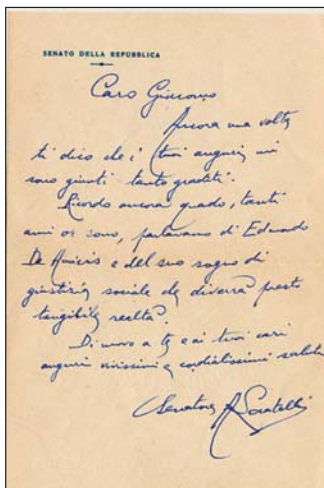 SENATO DELLA REPUBBLICA
Caro Giacomo
Ancora una volta
ti dico che i tuoi auguri mi
sono giunti tanto graditi.
Ricordo ancora quado, tanti
anni or sono, parlavamo di Edmondo
De Amicis e del suo sogno di
giustizia sociale che diverrà presto
tangibile realtà.
Di nuovo a te e ai tuoi cari
auguri vivissimi e cordialissimi saluti
Senatore